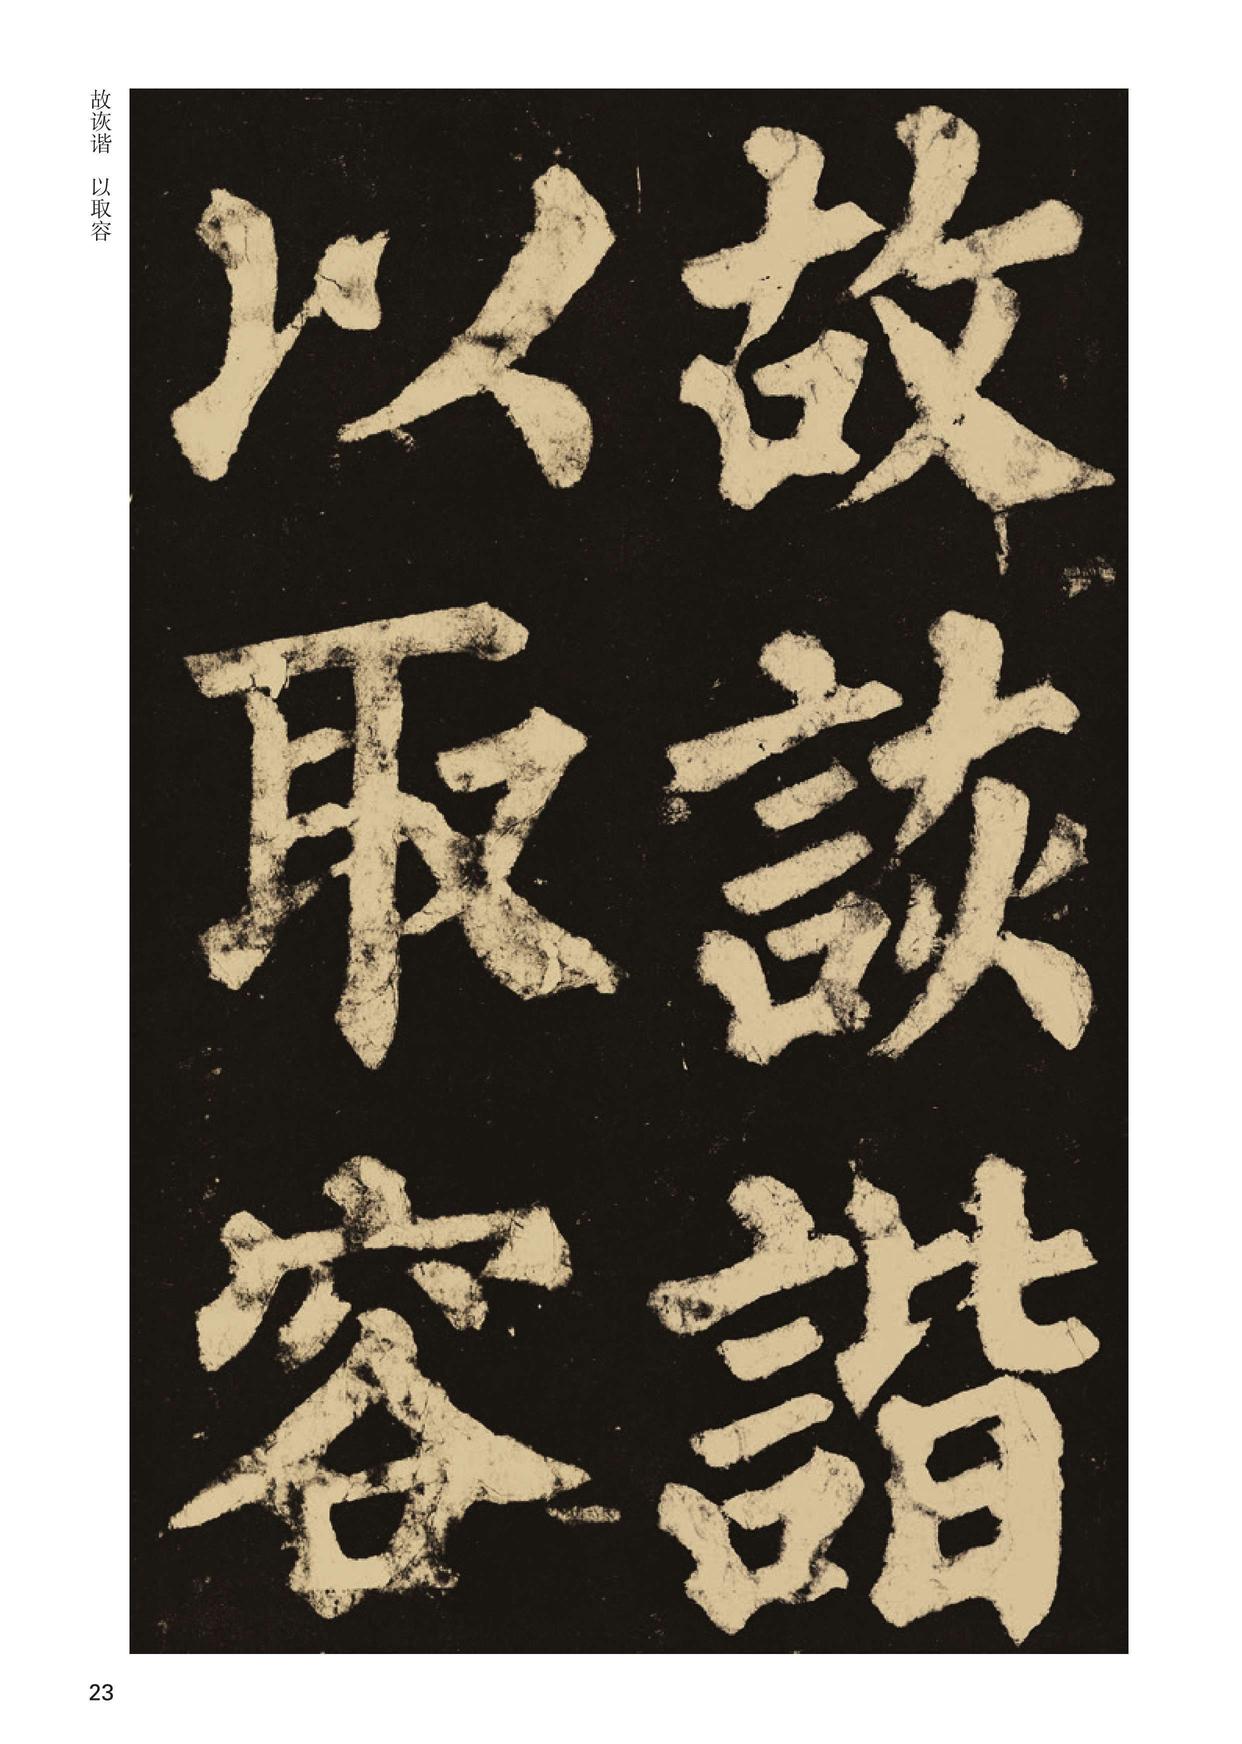 故詼諧
以取容
故诙谐 以取容
23